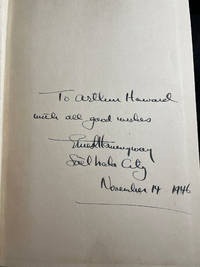 To Arthur Howard
with all good wishes
Ernest Hemingway
Salt Lake City
November 14 1946